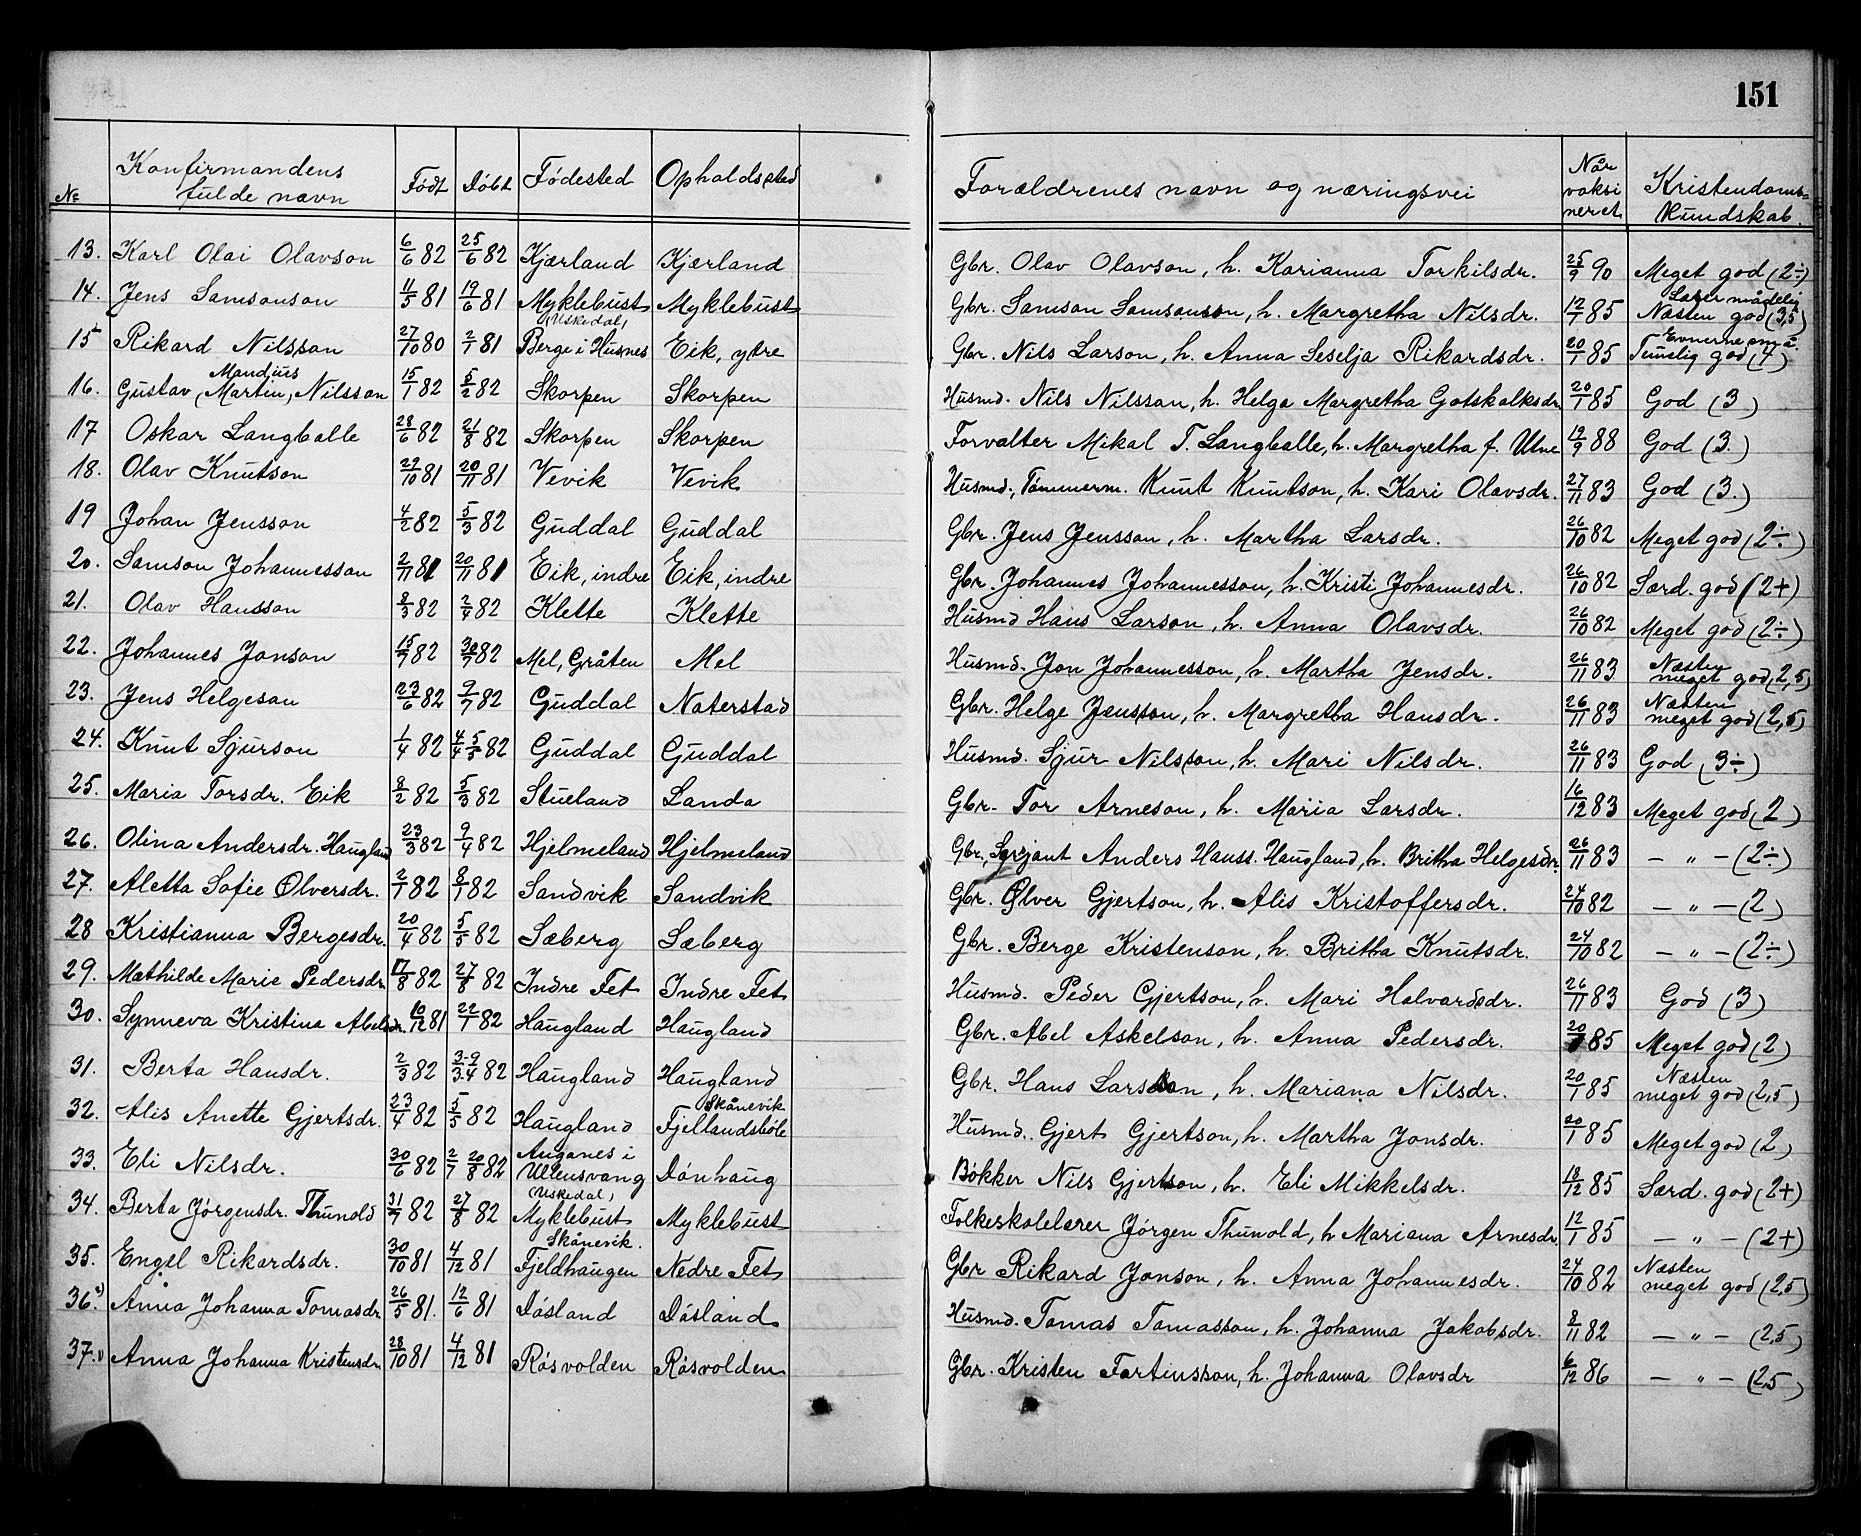 151
№ Konfirmandens fulde navn Født Døbt Fødested Opholdssted Forældrenes navn og næringsvei Når vaksineret Kristendomskundskab.
13. Karl Olai Olavson 6/6 82 25/6 82 Kjærland Kjærland Gbr. Olav Olavson, h. Karianna Torkilsdr. 25/9 90 Meget god (2÷)
14. Jens Samsonson 11/5 81 19/6 81 Myklebust (Uskedal) Myklebust Gbr. Samson Samsonson, h. Margretha Nilsdr. 12/7 85 Læser mådelig Næsten god (3,5)
15 Rikard Nilsson 27/10 80 2/1 81 Berge i Husnes Eik, ytre Gbr. Nils Larson, h. Anna Seselja Rikardsdr. 20/1 85 Evnerne små. Temelig god (4)
16. Gustav (Martin) Mandius Nilsson 15/1 82 5/2 82 Skorpen Skorpen Husmd. Nils Nilsson, h. Helga Margretha Gotskalksdr. 20/1 85 God (3)
17 Oskar Langballe 28/6 82 21/8 82 Skorpen Skorpen Forvalter Mikal T. Langballe, h. Margretha f. Utne 19/9 88 God (3.)
18. Olav Knutson 29/10 81 20/11 81 Vevik Vevik Husmd., Tømmerm. Knut Knutson, h. Kari Olavsdr. 27/11 83 God (3.)
19 Johan Jensson 4/2 82 5/3 82 Guddal Guddal Gbr. Jens Jensson, h. Martha Larsdr. 26/10 82 Meget god (2÷)
20. Samson Johannesson 2/11 81 20/11 81 Eik, indre Eik, indre Gbr. Johannes Johannesson, h. Kristi Johannesdr. 26/10 82 Særd. god (2+)
21. Olav Hansson 8/3 82 2/4 82 Klette Klette Husmd Hans Larson, h. Anna Olavsdr. 26/10 82 Meget god (2÷)
22. Johannes Jonson 15/7 82 30/7 82 Mel, Gråten Mel Husmd. Jon Johannesson, h. Martha Jensdr. 26/11 83 Næsten meget god (2,5)
23. Jens Helgeson 23/6 82 9/7 82 Guddal Naterstad Gbr. Helge Jensson, h. Margretha Hansdr. 26/11 83 Næsten meget god (2,5)
24. Knut Sjurson 1/4 82 4/4 5/5 82 Guddal Guddal Husmd. Sjur Nilsson, h. Mari Nilsdr. 26/11 83 God (3÷)
25. Maria Torsdr. Eik 8/2 82 5/3 82 Stueland Landa Gbr. Tor Arneson, h. Maria Larsdr. 16/12 83 Meget god (2)
26. Olina Andersdr. Haugland 23/3 82 9/4 82 Hjelmeland Hjelmeland Gbr., Serjant Anders Hanss. Haugland, h. Britha Helgesdr. 26/11 83 — " — (2÷)
27. Aletta Sofie Ølversdr. 2/1 82 8/1 82 Sandvik Sandvik Gbr. Ølver Gjertson, h. Alis Kristoffersdr. 24/10 82 — " — (2)
28 Kristianna Bergesdr. 20/4 82 5/5 82 Sæberg Sæberg Gbr. Berge Kristenson, h. Britha Knutsdr. 24/10 82 — " — (2÷)
29. Mathilde Marie Pedersdr. 17/8 82 27/8 82 Indre Fet Indre Fet Husmd. Peder Gjertson, h. Mari Halvardsdr. 26/11 83 God (3)
30. Synneva Kristina Abelsdr. 16/12 81 22/1 82 Haugland Haugland Gbr. Abel Askelson, h. Anna Pedersdr. 20/1 85 Meget god (2)
31. Berta Hansdr. 2/3 82 3-9/3-4 82 Haugland Haugland Gbr. Hans Larsson, h. Mariana Nilsdr. 20/1 85 Næsten meget god (2,5)
32. Alis Anette Gjertsdr. 23/4 82 5/5 82 Haugland Skånevik Fjellandsbøle Husmd. Gjert Gjertson, h. Martha Jonsdr. 20/1 85 Meget god (2)
33. Eli Nilsdr. 30/6 82 2/7 20/8 82 Auganes i Ullensvang Dønhaug Bøkker Nils Gjertson, h. Eli Mikkelsdr. 18/12 85 Særd. god (2+)
34. Berta Jørgensdr. Thunold 31/7 82 27/8 82 Uskedal, Myklebust Myklebust Folkeskolelærer Jørgen Thunold, h Mariana Arnesdr. 12/1 85 — " — (2+)
35. Engel Rikardsdr. 30/10 81 4/12 81 Skånevik. Fjeldhaugen Nedre Fet Gbr Rikard Jonson, h. Anna Johannesdr. 24/10 82 Næsten meget god (2,5)
36. Anna Johanna Tomasdr 26/5 81. 12/6 81 Døsland Døsland Husmd. Tomas Tomasson, h. Johanna Jakobsdr. 8/11 82 — " — (2,5)
37. Anna Johanna Kristensdr 28/10 81 4/12 81 Røsvolden Røsvolden Gbr. Kristen Tortinsson, h. Johanna Olavsdr 6/12 86 — " — (2,5)